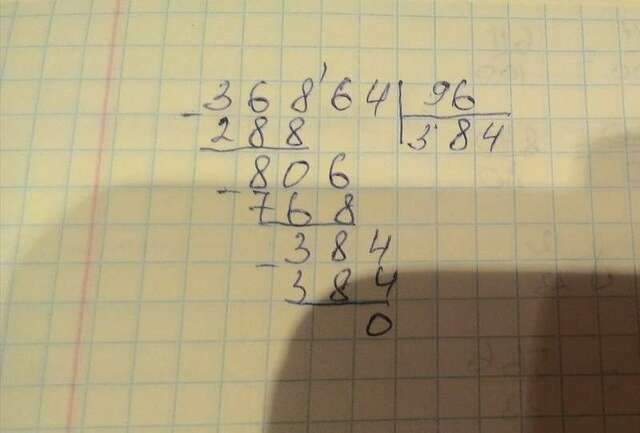 - 368'64 | 96
288 | 384
- 806
768
- 384
384
0